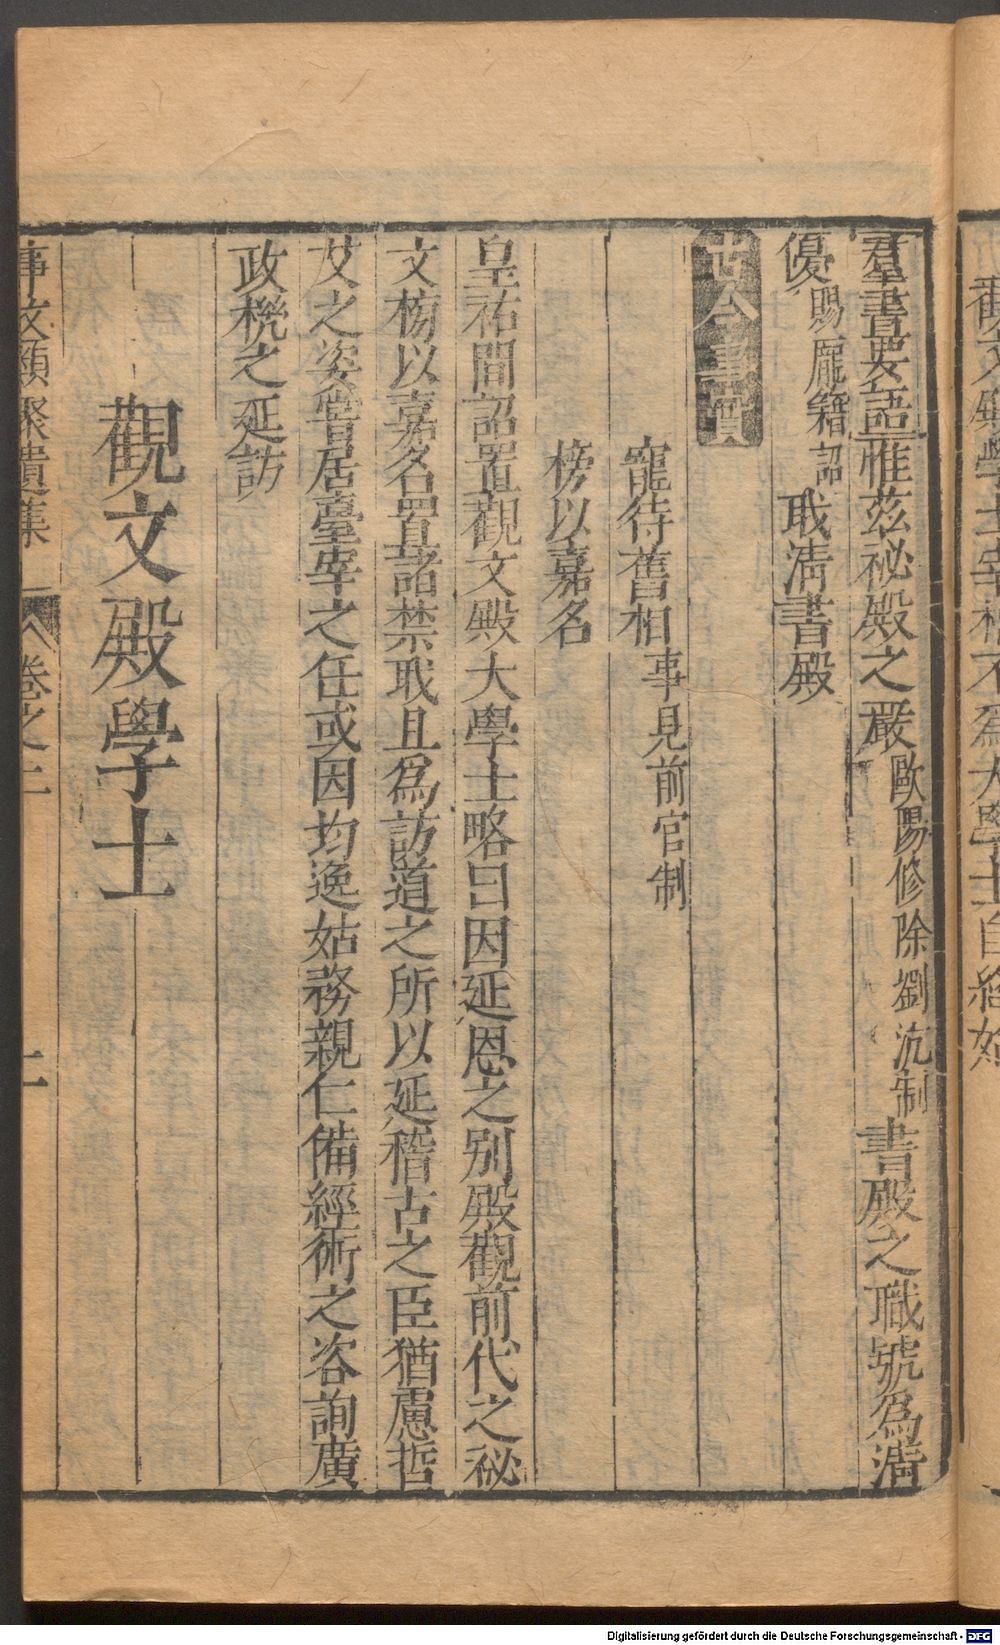 觀文殿學士宰相不爲大學士自
羣書要語惟茲祕殿之嚴歐陽修除劉沆制書殿之職號爲清
優賜龐籍詔職清書殿
古今事實
寵待舊相事見前官制
榜以嘉名
皇祐間詔置觀文殿大學士略曰因延恩之別殿觀前代之祕
文榜以嘉名置諸禁職且爲訪道之所以延稽古之臣猶慮哲
艾之姿嘗居臺宰之任或因均逸姑務親仁備經術之咨詢廣
政機之延訪
觀文殿學士
事文類聚遺集 卷之二 二
Digitalisierung gefördert durch die Deutsche Forschungsgemeinschaft - DFG